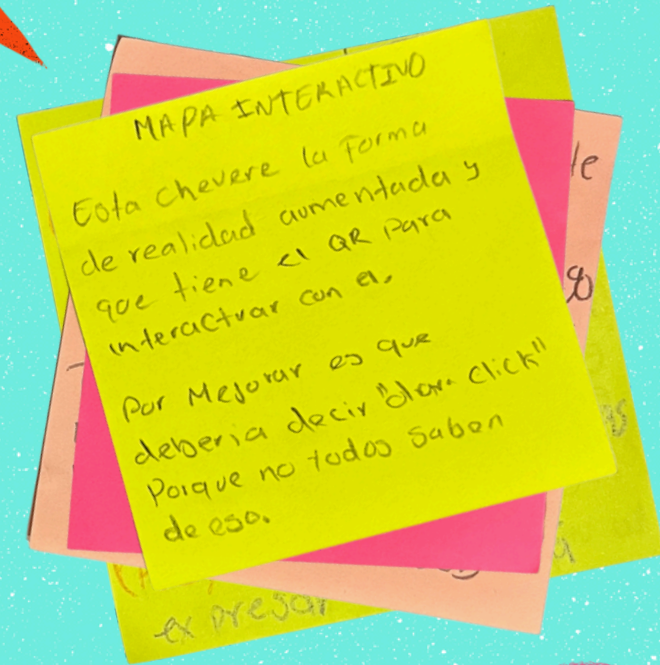 MAPA INTERACTIVO
Esta chevere la forma
de realidad aumentada y
que tiene el QR para
interactuar con el.
Por Mejorar es que
deberia decir "dar click"
Porque no todos saben
de eso.
le
expresar